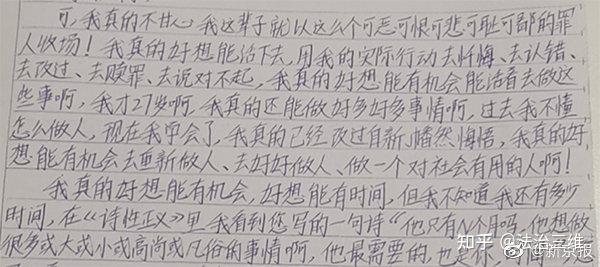 可，我真的不甘心我这辈子就以这么个可恶可恨可悲可耻可鄙的罪
人收场！我真的好想能活下去，用我的实际行动去忏悔、去认错、
去改过、去赎罪、去说对不起，我真的好想能有机会能活着去做这
些事啊，我才27岁啊，我真的还能做好多好多事情啊，过去我不懂
怎么做人，现在我学会了，我真的已经改过自新、幡然悔悟，我真的好
想能有机会去重新做人、去好好做人、做一个对社会有用的人啊！
我真的好想能有机会，好想能有时间，但我不知道我还有多少
时间，在《诗性正义》里我看到您写的一句诗“他只有N个月吗，他想做
很多或大或小或高尚或凡俗的事情啊，他最需要的，也是你，
知乎 @法治三维
@新京报